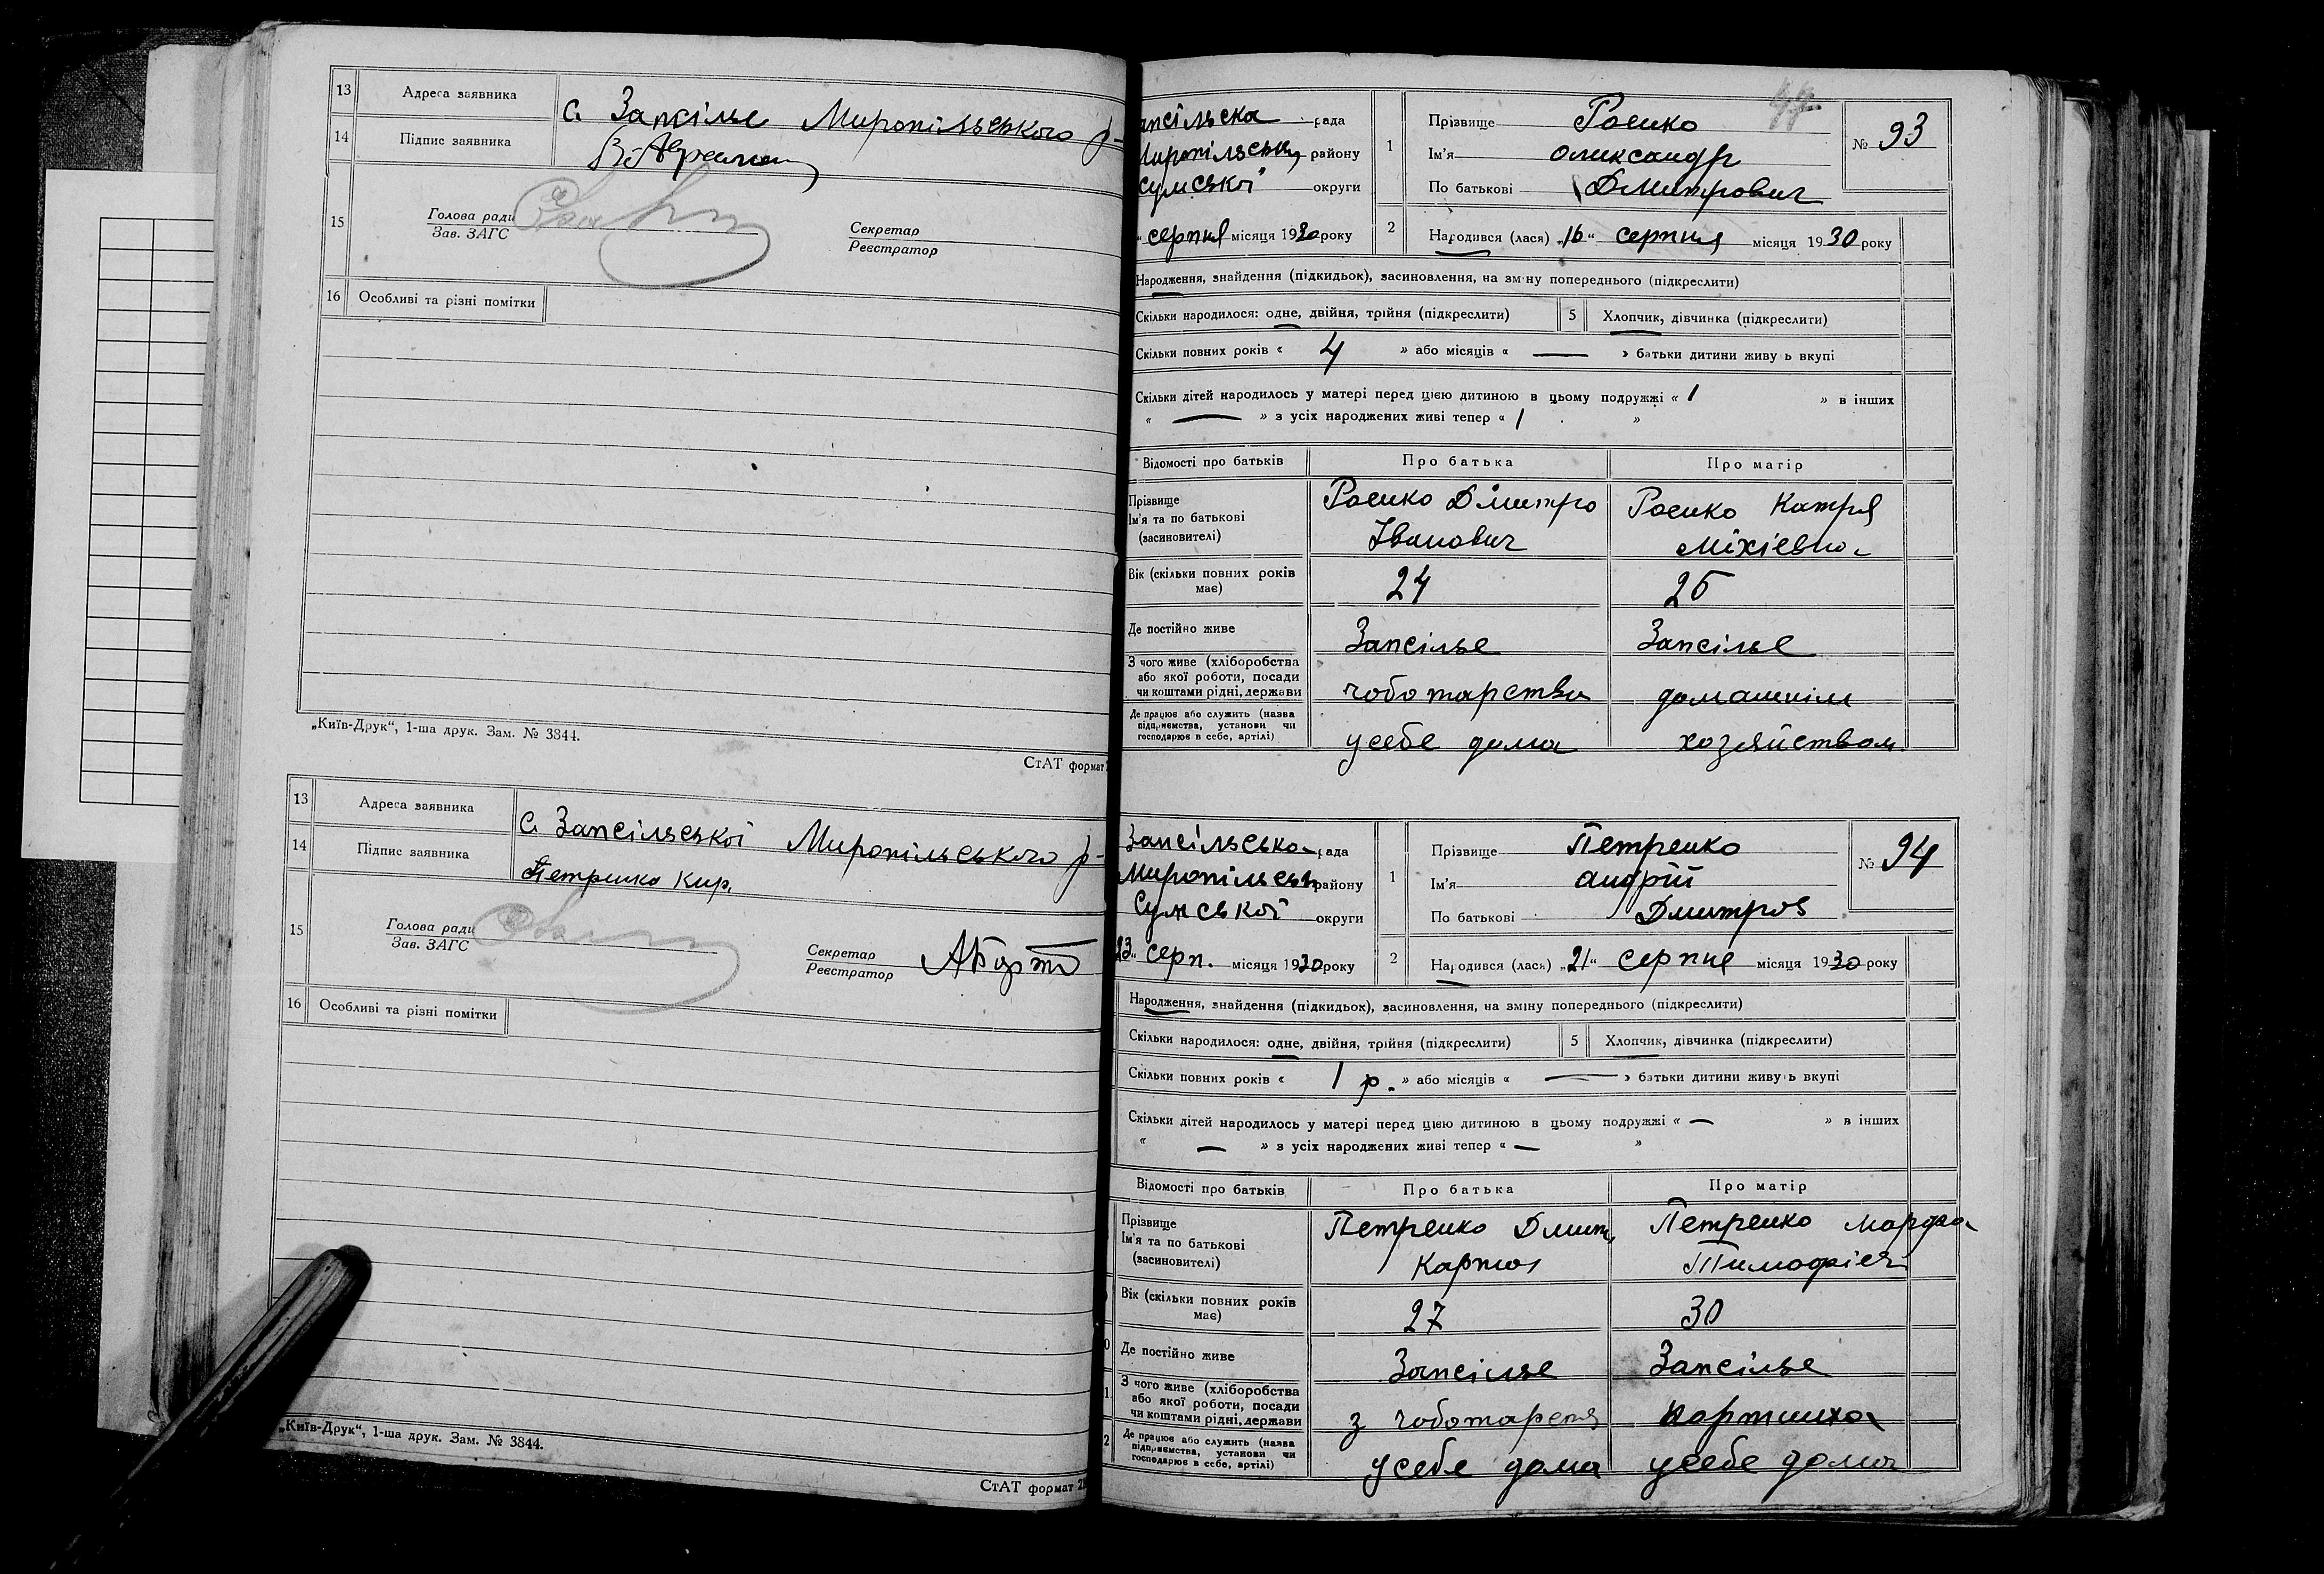 13 Адреса заявника с. Запсілье Миропільського р-
14 Підпис заявника
15 Голова ради
Зав. ЗАГС
Секретар
Реєстратор
16 Особливі та різні помітки
„Київ-Друк“, 1-ша друк. Зам. № 3844.
СтАТ формат
13 Адреса заявника с. Запсільської Миропільського р-
14 Підпис заявника Петренко Кир.
15 Голова ради
Зав. ЗАГС
Секретар
Реєстратор
16 Особливі та різні помітки
„Київ-Друк“, 1-ша друк. Зам. № 3844.
СтАТ формат
апсільска рада
Миропільськ району
Сумської округи
“ серпня місяця 1930 року
1 Прізвище Роенко
Ім'я Олександр
По батькові Дмитрович
№ 93
2 Народився (лася) „16“ серпня місяця 1930 року
Народження, знайдення (підкидьок), засиновлення, на зміну попереднього (підкреслити)
Скільки народилося: одне, двійня, трійня (підкреслити) 5 Хлопчик, дівчинка (підкреслити)
Скільки повних років « 4 » або місяців « — » батьки дитини живуь вкупі
Скільки дітей народилось у матері перед цією дитиною в цьому подружжі « 1 » в інших
« — » з усіх народжених живі тепер « 1 »
Відомості про батьків Про батька Про матір
Прізвище
Ім'я та по батькові
(засиновителі)
Роенко Дмитро
Іванович
Роенко Катря
Міхіевна
Вік (скільки повних років
має)
24 26
Де постійно живе Запсілье Запсілье
З чого живе (хліборобства
або якої роботи, посади
чи коштами рідні, держави
чоботарства домашнім
Де працює або служить (назва
підприємства, установи чи
господарює в себе, артілі)
усебе дома хозяйством
Запсільська рада
Миропільськ району
Сумської округи
23“ серп. місяця 1930 року
1 Прізвище Петренко
Ім'я Андрій
По батькові Дмитров
№ 94
2 Народився (лася) „21“ серпня місяця 1930 року
Народження, знайдення (підкидьок), засиновлення, на зміну попереднього (підкреслити)
Скільки народилося: одне, двійня, трійня (підкреслити) 5 Хлопчик, дівчинка (підкреслити)
Скільки повних років « 1 р. » або місяців « — » батьки дитини живуь вкупі
Скільки дітей народилось у матері перед цією дитиною в цьому подружжі « — » в інших
« — » з усіх народжених живі тепер « — »
Відомості про батьків Про батька Про матір
Прізвище
Ім'я та по батькові
(засиновителі)
Петренко Дмит.
Петренко
Тимофієв
Вік (скільки повних років
має)
27 30
Де постійно живе Запсілье Запсілье
З чого живе (хліборобства
або якої роботи, посади
чи коштами рідні, держави
з чоботарств
Де працює або служить (назва
підприємства, установи чи
господарює в себе, артілі)
усебе дома усебе дома